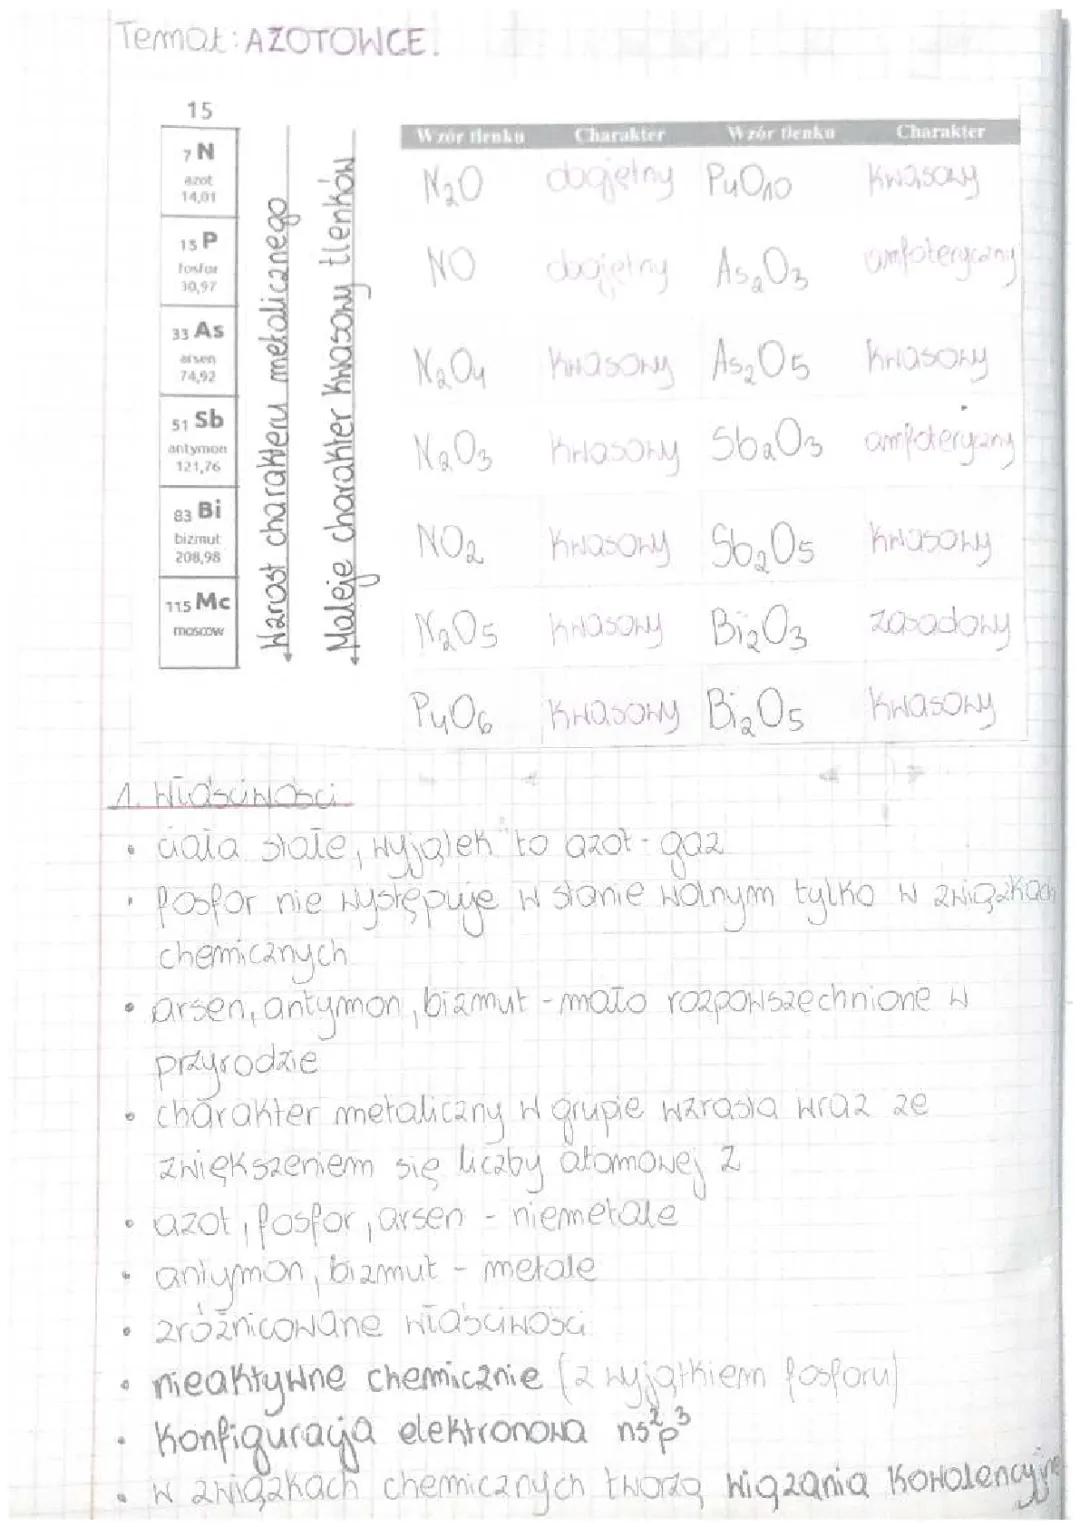 Temat: AZOTOWCE.
15
7 N
azot
14,01
15 P
fosfor
30,97
33 As
arsen
74,92
51 Sb
antymon
121,76
83 Bi
bizmut
208,98
115 Mc
moscow
Wzrost charakteru metalicznego
Maleje charakter kwasowy tlenków
Wzór tlenku Charakter Wzór tlenku Charakter
N₂O obojętny P₄O₁₀ kwasowy
NO obojętny As₂O₃ amfoteryczny
N₂O₄ kwasowy As₂O₅ kwasowy
N₂O₃ kwasowy Sb₂O₃ amfoteryczny
NO₂ kwasowy Sb₂O₅ kwasowy
N₂O₅ kwasowy Bi₂O₃ zasadowy
P₄O₆ kwasowy Bi₂O₅ kwasowy
1. Właściwości
• ciała stałe, wyjątek to azot - gaz
• fosfor nie występuje w stanie wolnym tylko w związkach
chemicznych
• arsen, antymon, bizmut - mało rozpowszechnione w
przyrodzie
• charakter metaliczny w grupie wzrasta wraz ze
zwiększeniem się liczby atomowej Z
• azot, fosfor, arsen - niemetale
• antymon, bizmut - metale
• zróżnicowane właściwości
• nieaktywne chemicznie (z wyjątkiem fosforu)
• konfiguracja elektronowa ns²p³
• w związkach chemicznych tworzą wiązania kowalencyjne